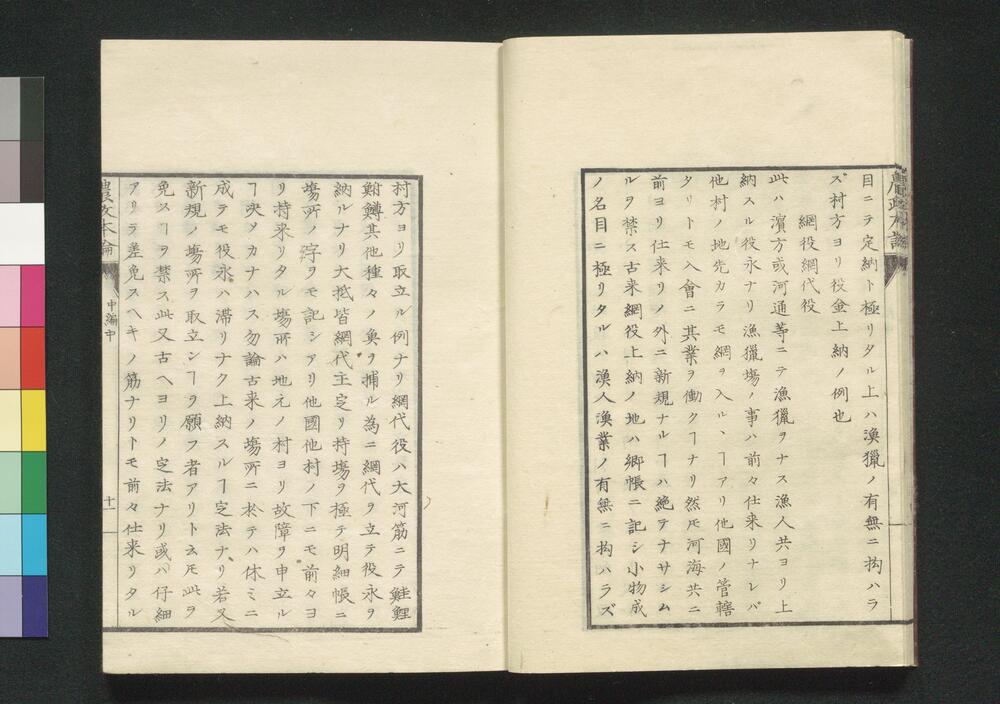 目ニテ定納ト極リタル上ハ漁獵ノ有無ニ拘ハラ
ズ村方ヨリ役金上納ノ例也
網役網代役
此ハ濱方或河通等ニテ漁獵ヲナス漁人共ヨリ上
納スル役永ナリ漁獵塲ノ事ハ前々仕来リナレバ
他村ノ地先カラモ網ヲ入ルヽヿアリ他國ノ管轄
タリトモ入會ニ其業ヲ働クヿナリ然𪜈河海共ニ
前ヨリ仕来リノ外ニ新規ナルヿハ絶テナサシム
ルヲ禁ス古来網役上納ノ地ハ郷帳ニ記シ小物成
ノ名目ニ極リタルハ漁人漁業ノ有無ニ拘ハラズ
村方ヨリ取立ル例ナリ網代役ハ大河筋ニテ鮭鯉
鮒鱒其他種々ノ魚ヲ捕ル為ニ網代ヲ立テ役永ヲ
納ルナリ大抵皆網代主定リ持塲ヲ極テ明細帳ニ
塲所ノ字ヲモ記シアリ他國他村ノ下ニモ前々ヨ
リ持来リタル塲所ハ地元ノ村ヨリ故障ヲ申立ル
ヿ决ソカナハス勿論古来ノ塲所ニ於テハ休ミニ
成テモ役永ハ滞リナク上納スルヿ定法ナリ若又
新規ノ塲所ヲ取立ンヿヲ願フ者アリト云𪜈此ヲ
免スヿヲ禁ス此又古ヘヨリノ定法ナリ或ハ仔細
アリテ差免スヘキノ筋ナリトモ前々仕来リタル
農政本論
中編中
十一